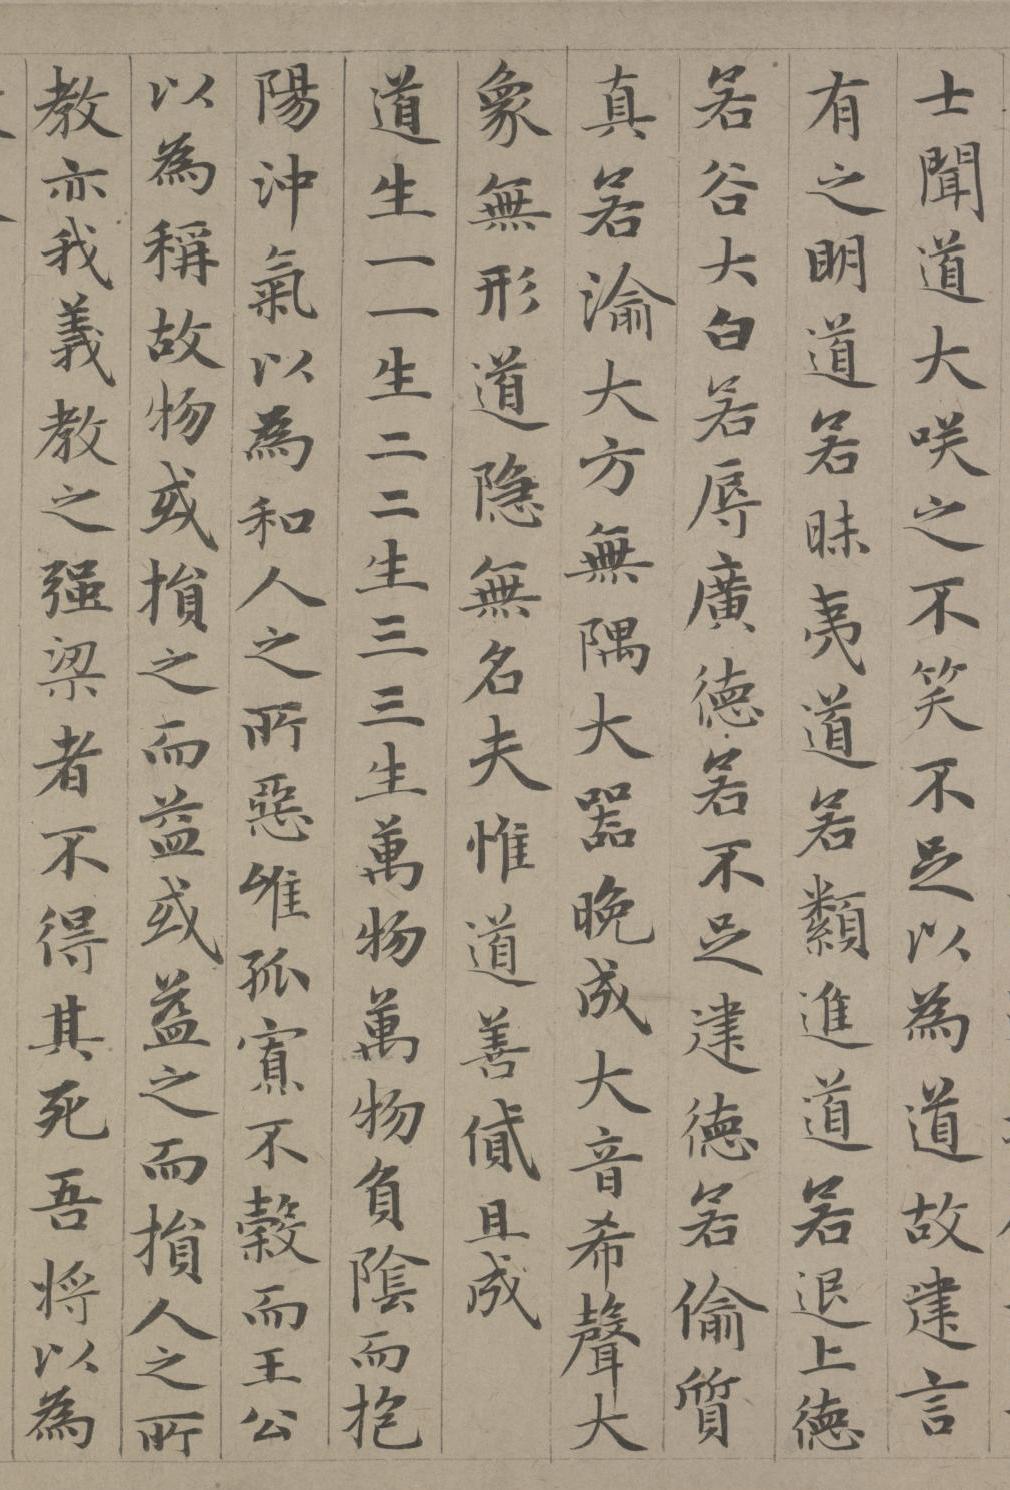 士聞道大咲之不笑不足以為道故建言
有之明道若昧夷道若類進道若退上德
若谷大白若辱廣德若不足建德若偷質
真若渝大方無隅大器晚成大音希聲大
象無形道隐無名夫惟道善貸且成
道生一一生二二生三三生萬物萬物負陰而抱
陽沖氣以為和人之所惡唯孤寡不穀而王公
以為稱故物或損之而益或益之而損人之所
教亦我義教之强梁者不得其死吾将以為